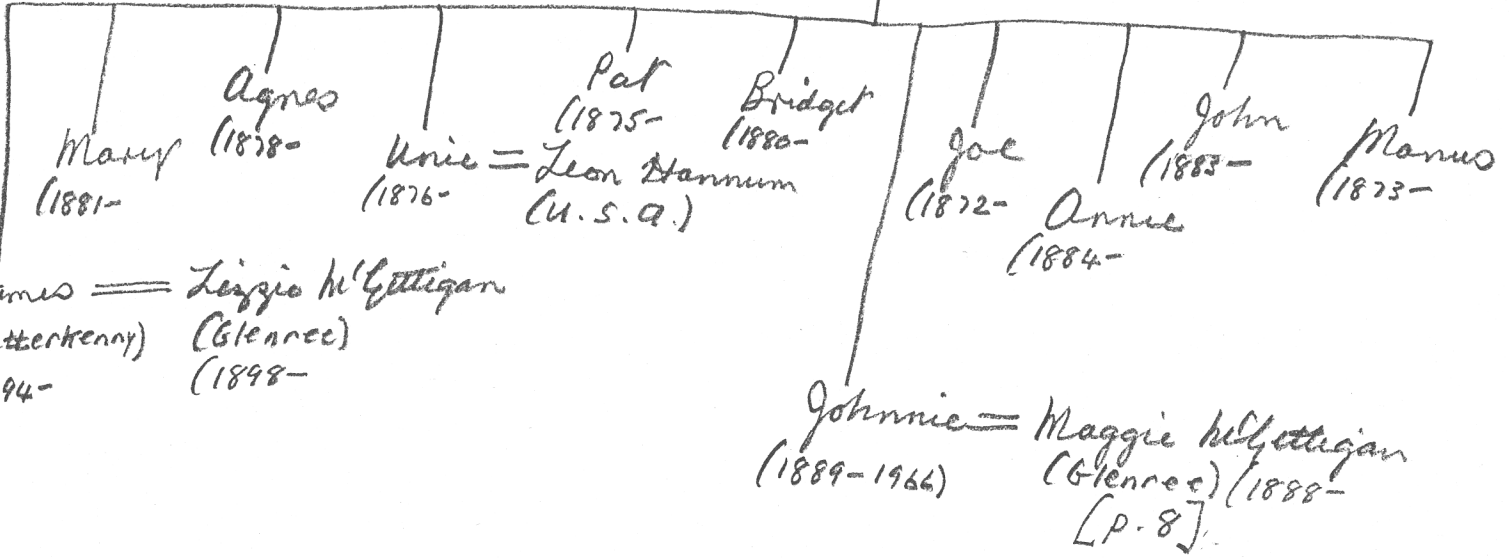 Agnes
(1878-
Mary
(1881-
Unie = Leon Hannum
(1876-
(U.S.A.)
Pat
(1875-
Bridget
(1880-
Joe
(1872-
Annie
(1884-
John
(1883-
Manus
(1873-
ames = Lizzie McGettigan
tterkenny) (Glenree)
94- (1898-
Johnnie = Maggie McGettigan
(1889-1966) (Glenree) (1888-
[p. 8]